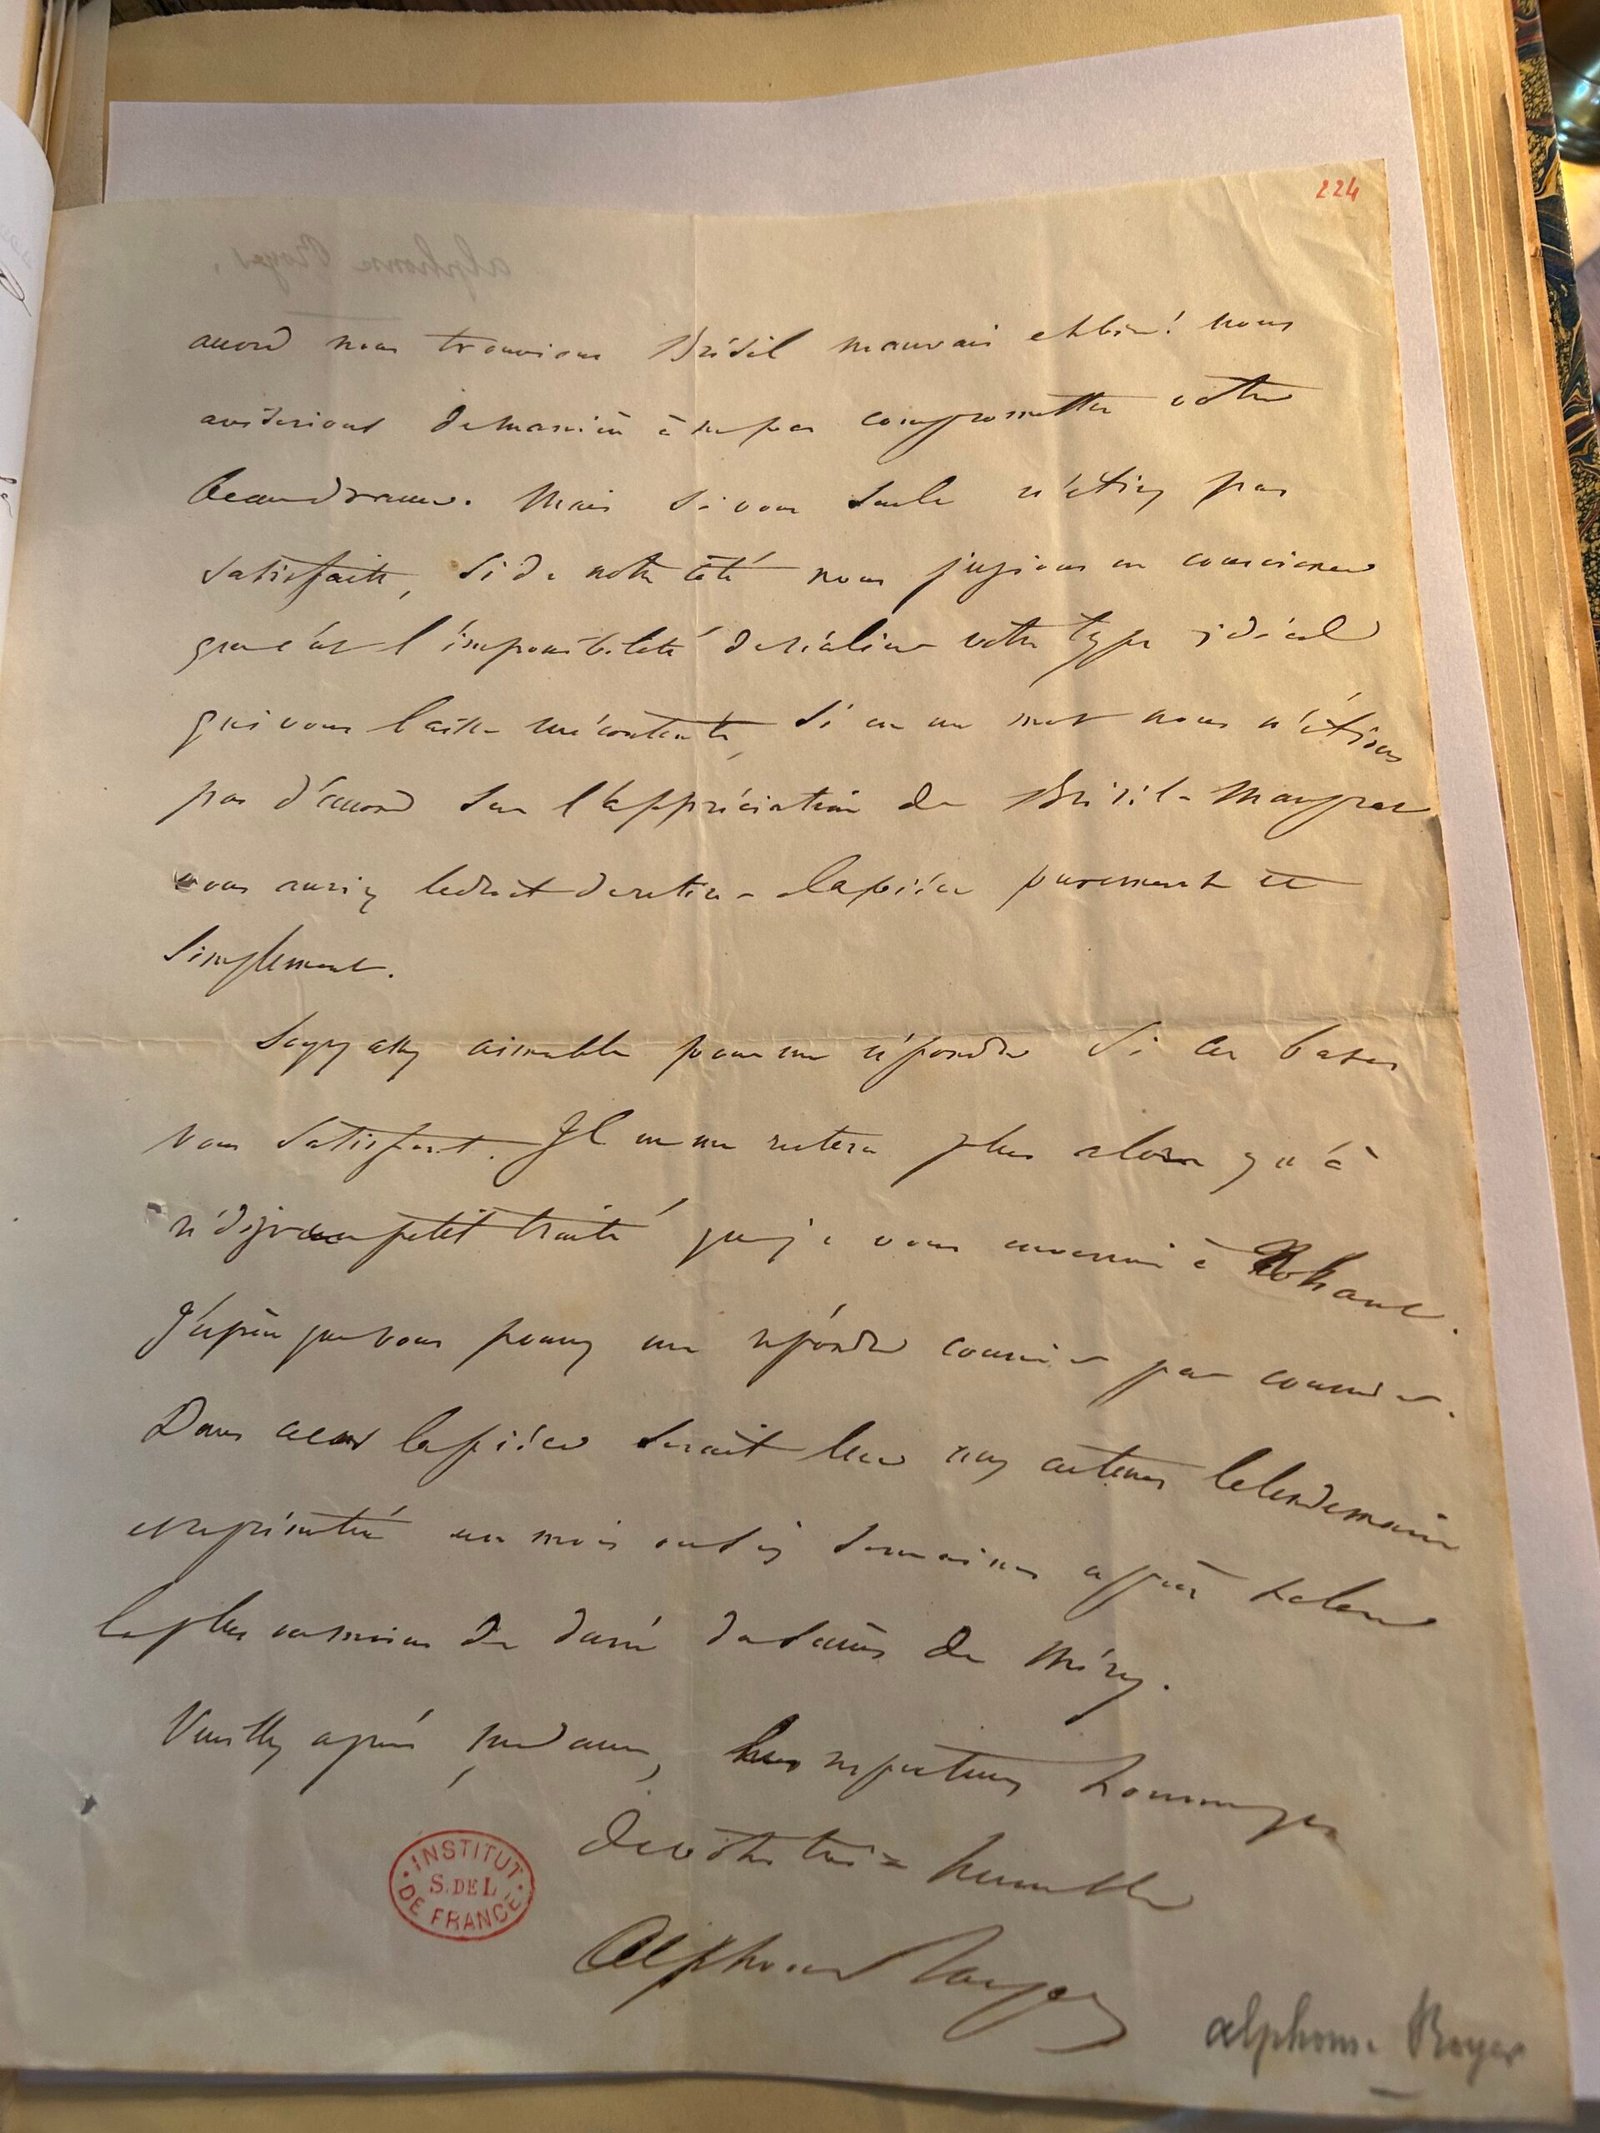 224
accord nous trouvions Brésil mauvais eh bien! nous
aviserions de manière à ne pas compromettre votre
beau drame. Mais si vous seule n'étiez pas
satisfaite, si de notre côté nous jugions en conscience
que c'est l'impossibilité de réaliser votre type idéal
qui vous laisse mécontente, si en un mot nous n'étions
pas d'accord sur l'appréciation de Brésil-
vous auriez le droit de retirer la pièce purement et
simplement.
Soyez assez aimable pour me répondre si ces bases
vous satisfont. Il ne me restera plus alors qu'à
rédiger un petit traité que je vous enverrai à Nohant.
J'espère que vous pourrez me répondre courrier par courrier.
Dans ce cas la pièce serait lue aux acteurs le lendemain
et représentée un mois ou six semaines après selon
le plus ou moins de durée du succès de Méry.
Veuillez agréer, madame, les respectueux hommages
de votre très humble
Alphonse Royer
alphonse Royer
INSTITUT
S. DE L
DE FRANCE